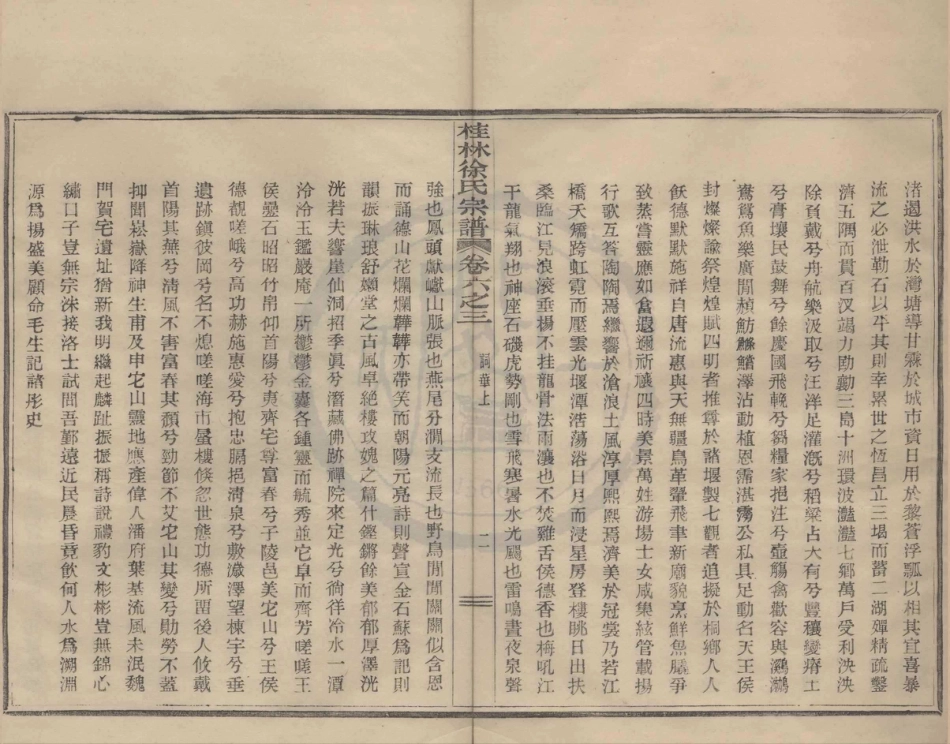 渚遏洪水於灣塘導甘霖於城市資日用於黎蒼浮瓢以相其宜喜暴
流之必泄勒石以平其則幸累世之恆昌立三堨而蓄二湖殫精疏鑿
濟五隅而貫百汊竭力勛勷三島十洲環波灩灩七鄉萬戶受利泱泱
除負戴兮舟航樂汲取兮汪洋足灌漑兮稻粱占大有兮豐穰變瘠土
兮膏壤民鼓舞兮餘慶國飛輓兮芻糧家挹注兮壺觴禽歡容與鸂鶒
鴛鴦魚樂廣閒頳魴鱣鰌澤沾動植恩霈湛霶公私具足動名天王侯
封燦燦諭祭煌煌賦四明者推尊於諸堰製七觀者追擬於桐鄉人人
飫德默默施祥自唐流惠與天無疆鳥革翬飛聿新廟貌烹鮮魚膳爭
致蒸嘗靈應如畣遐邇祈禳四時美景萬姓游場士女咸集絃管載揚
行歌互答陶陶焉繼響於滄浪土風淳厚熙熙焉濟美於冠裳乃若江
橋天矯跨虹霓而壓雲光堰潭浩蕩浴日月而浸星房登樓眺日出扶
桑臨江見浪滾垂楊不挂龍骨法雨瀼也不焚雞舌侯德香也梅吼江
干龍氣翔也神座石磯虎勢剛也雪飛寒暑水光颺也雷鳴晝夜泉聲
桂林徐氏宗譜 卷六之三 詞華上 二一
強也鳳頭巘巘山脈張也燕尾分澗支流長也野鳥閒閒關關似含恩
而誦德山花爛爛韡韡亦帶笑而朝陽元亮詩則聲宣金石蘇為記則
韻振琳琅舒嬾堂之古風卓絕樓攻媿之篇什鏗鏘餘美郁郁厚澤洸
洸若夫響崖仙洞招季眞兮潛藏佛跡禪院來定光兮徜徉冷水一潭
泠泠玉鑑巖庵一所鬱鬱金臺各鍾靈而毓秀並它阜而齊芳嗟嗟王
侯疉石昭昭竹帛仰首陽兮夷齊宅尊富春兮子陵邑美它山兮王侯
德覩嗟峨兮高功赫施惠愛兮抱忠膈挹淸泉兮敷瀛澤望棟宇兮垂
遺跡鎭彼岡兮名不熄嗟嗟海市蜃樓倏忽世態功德所畱後人攸戴
首陽其蕪兮淸風不害富春其頹兮勁節不艾它山其變兮勛勞不蓋
抑聞崧嶽降神生甫及申它山靈地應產偉人潘府葉基流風未泯魏
門賀宅遺址猶新我明繼起麟趾振振稱詩說禮豹文彬彬豈無錦心
繡口子豈無宗洙接洛士試問吾鄞遠近民晨昏竟飮何人水為溯淵
源為揚盛美顧命毛生記諸彤史